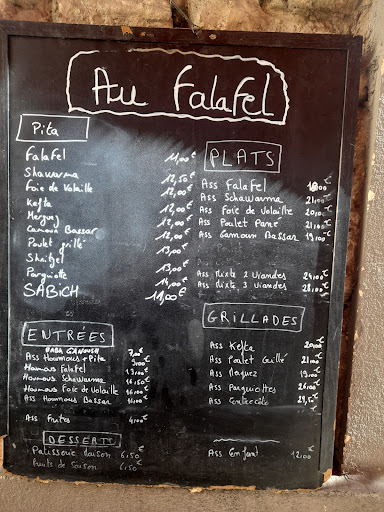 Au Falafel
Pita
Falafel 11,00€
Shawarma 12,50€
Foie de Volaille 12,00€
Kefta 12,00€
Merguez 12,00€
Gamoux Bassar 12,00€
Poulet grillé 13,00€
Shnitzel 13,00€
Parguiotte 13,00€
SABICH 11,00€
ENTRÉES
BABA GANOUSH
Ass Houmous + Pita
Houmous Falafel
Houmous Schawarma
Houmous Foie de Volaille
Ass Houmous Bassar
Ass Frites 4,00€
DESSERTS
Patisserie Maison 6,50€
Fruits de Saison 6,50€
PLATS
Ass Falafel
Ass Schawarma 21,00€
Ass Foie de Volaille 20,00€
Ass Poulet Pané 21,00€
Ass Gamoux Bassar 19,00€
Ass Mixte 2 Viandes 24,00€
Ass Mixte 3 Viandes 28,00€
GRILLADES
Ass Kefta 20,00€
Ass Poulet Grillé 21,00€
Ass Merguez 19,00€
Ass Parguiottes 26,00€
Ass Entrecote
Ass Enfant 12,00€